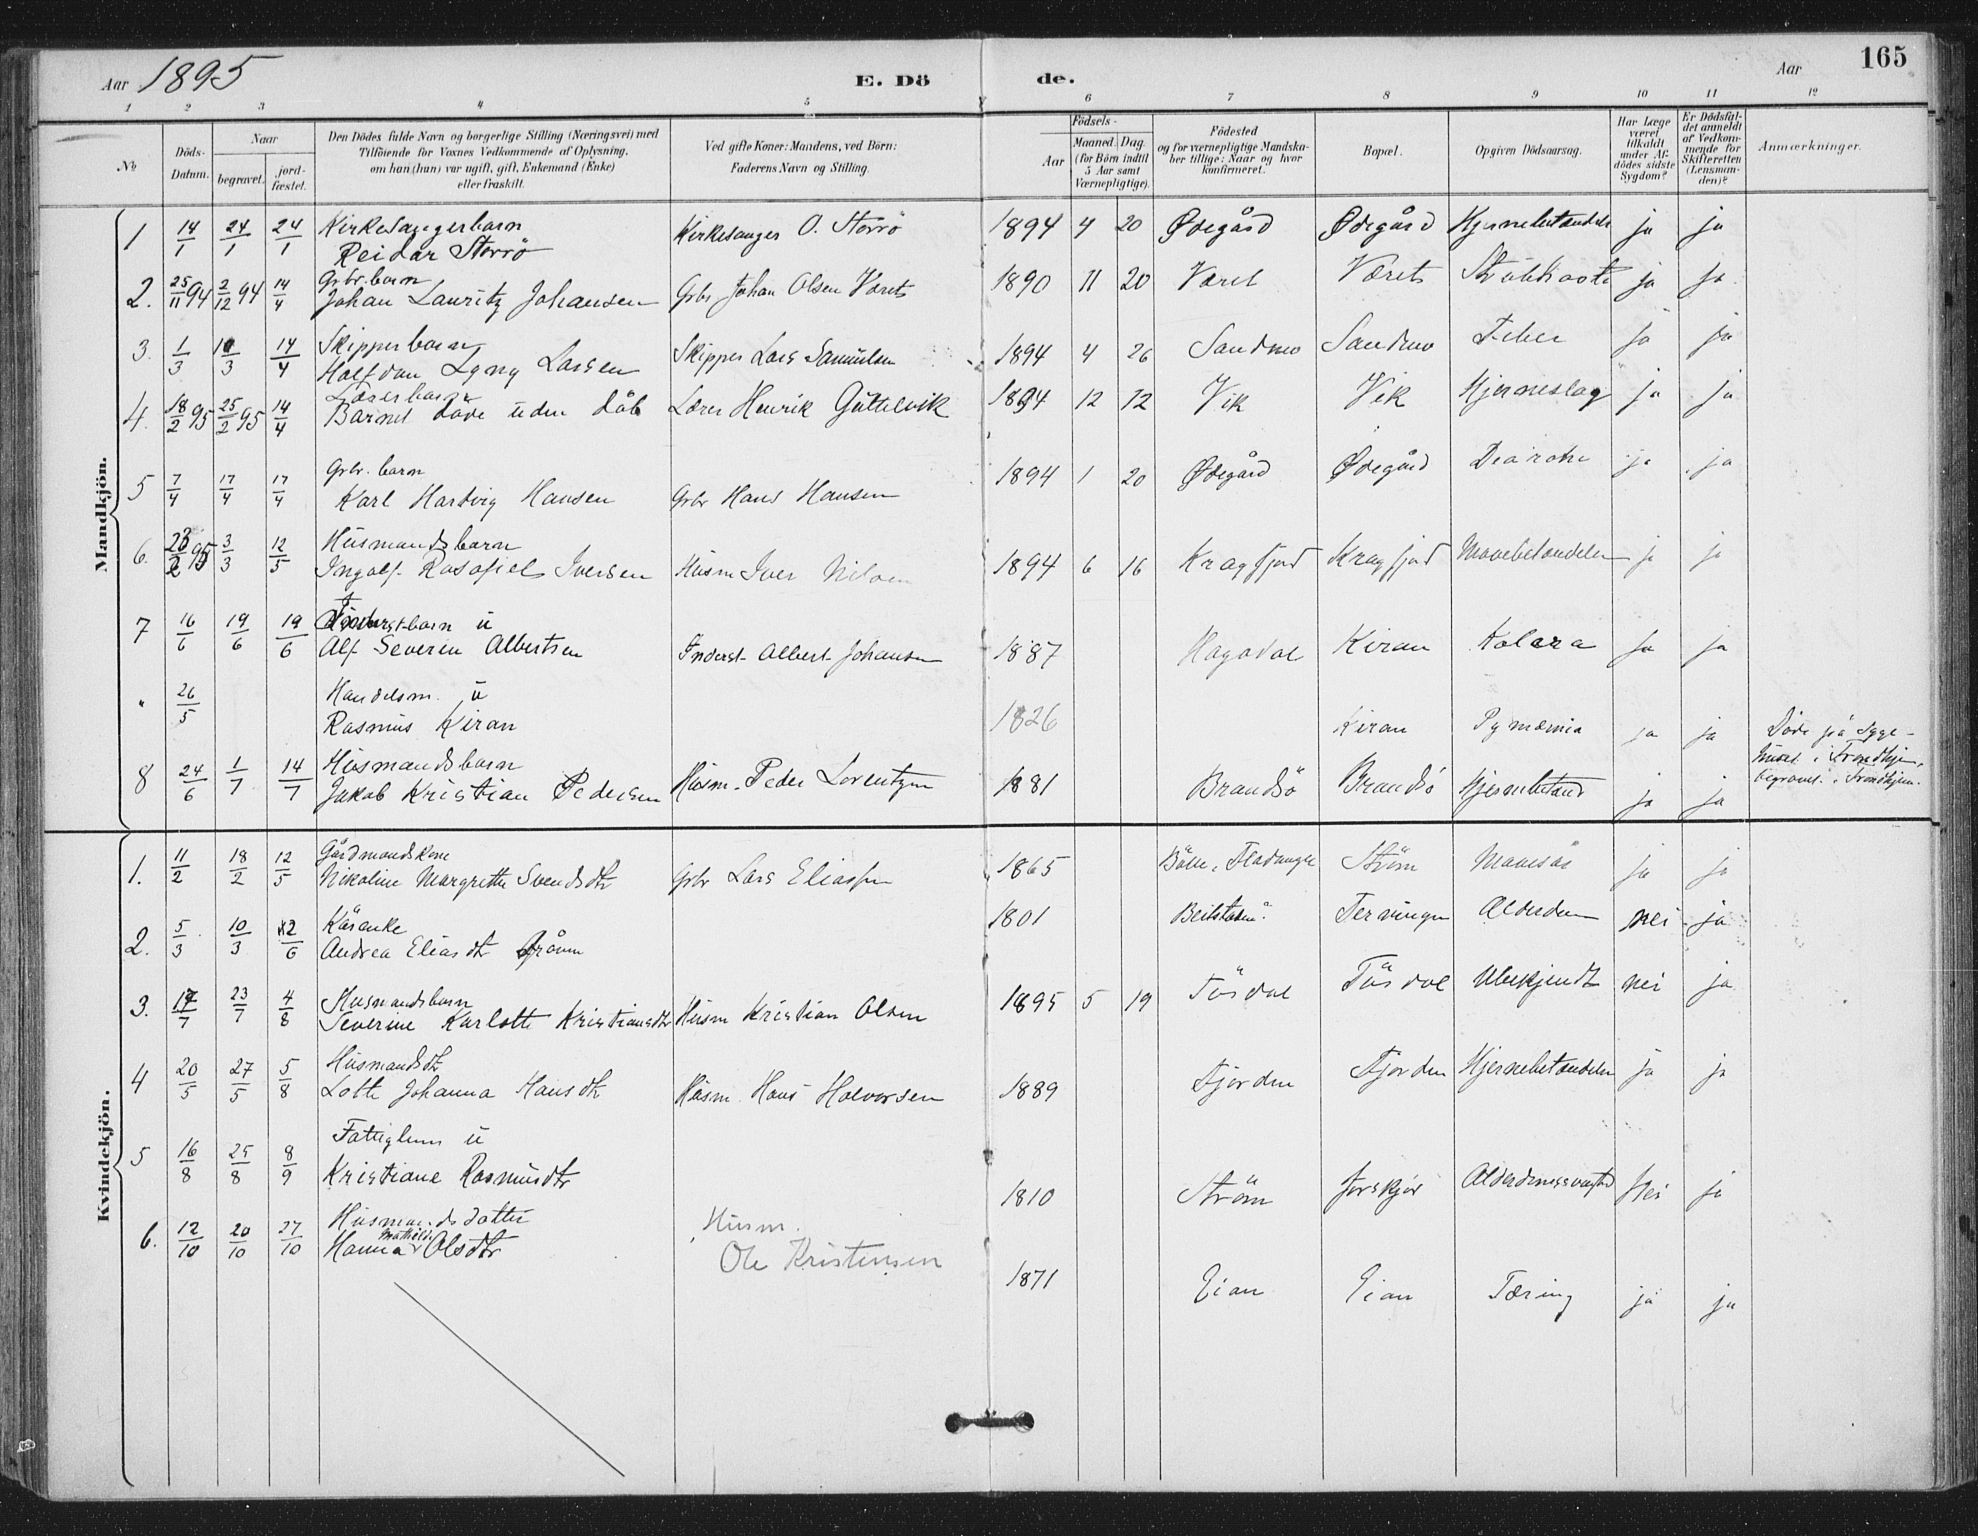 Aar 1895 E. Dö de. Aar 165
1 2 3 4 5 6 7 8 9 10 11 12
No
Döds-Datum.
Naar
begravet.
jord-fæstet.
Den Dödes fulde Navn og borgerlige Stilling (Næringsvei) med
Tilföiende for Voxnes Vedkommende af Oplysning,
om han (hun) var ugift, gift, Enkemand (Enke)
eller fraskilt.
Ved gifte Koner: Mandens, ved Börn:
Faderens Navn og Stilling.
Födsels-
Aar
Maaned. Dag.
(for Börn indtil
5 Aar samt
Værnepligtige).
Födested
og for værnepligtige Mandska-
ber tillige: Naar og hvor
konfirmeret.
Bopæl.
Opgiven Dödsaarsag.
Har Læge
været
tilkaldt
under Af-
dödes sidste
Sygdom?
Er Dödsfal-
det anmeldt
af Vedkom-
mende for
Skifteretten
(Lensman-
den)?
Anmærkninger.
Mandkjön.
1 14/1 24/1 24/1 Kirkesangerbarn
Reidar Storrö Kirkesanger O. Storrö 1894 4 20 Ødegård Ødegård ja ja
2. 25/11 94 2/12 94 14/4 Gbr. barn
Johan Lauritz Johansen Gbr Johan Olsen Været 1890 11 20 Været Været Strübehoste ja ja
3. 1/3 10/3 14/4 Skipperbarn
Halfdan Lyng Larsen Skipper Lars Samuelsen 1894 4 26 Sandmo Sandmo Feber ja ja
4. 18/2 95 25/2 95 14/4 Lærerbarn
Barnet döde uden dåb Lærer Henrik Güttelvik 1894 12 12 Vik Vik Hjerneslag ja ja
5 7/4 17/4 17/4 Gbr. barn
Karl Hartvig Hansen Gbr Hans Hansen 1894 1 20 Ødegård Ødegård ja ja
6. 95 3/3 12/5 Husmandsbarn
Ingolf Iversen Husm Iver Nilsen 1894 6 16 Kragfjord Kragfjord Mavebetændelse ja ja
7 16/6 19/6 19/6 Inderstbarn u
Alf Severin Albertsen Inderst Albert Johansen 1887 Hagadal Kiran Kolera ja ja
" 26/5 Handelsm. u
Rasmus Kiran 1826 Kiran Pymæmia ja ja Döde på Syge-
huset i Trondhjem,
begravet i Trondhjem.
8 24/6 1/7 14/7 Husmandsbarn
Jakob Kristian Pedersen Husm. Peder Lorentzen 1881 Brandsö Brandsö Hjernebetænd ja ja
Kvindekjön.
1. 11/2 18/2 12/5 Gårdmandskone
Nikoline Margrethe Svendsdtr Gbr Lars Eliassen 1865 Ström ja ja
2. 5/3 10/3 12/6 Kårenke
Andrea Eliasdtr 1801 Beitstaden Terningen Alderdom nei ja
3. 17/7 23/7 4/8 Husmandsbarn
Severine Karlotte Kristiansdtr Husm Kristian Olsen 1895 5 19 Tüsdal Tüsdal Ubekjendt nei ja
4 20/5 27/5 5/8 Husmandsdtr
Lotte Johanna Hansdtr Husm. Hans Halvorsen 1889 Fjorden Fjorden Hjernebetændelse ja ja
5 16/8 25/8 8/9 Fattiglem u
Kristiane Rasmusdtr 1810 Ström Alderdomssvaghed Nei ja
6. 12/10 20/10 27/10 Husmandsdatter
Hanna Mathilde Olsdtr Husm.
Ole Kristensen 1871 Eian Eian Tæring ja ja